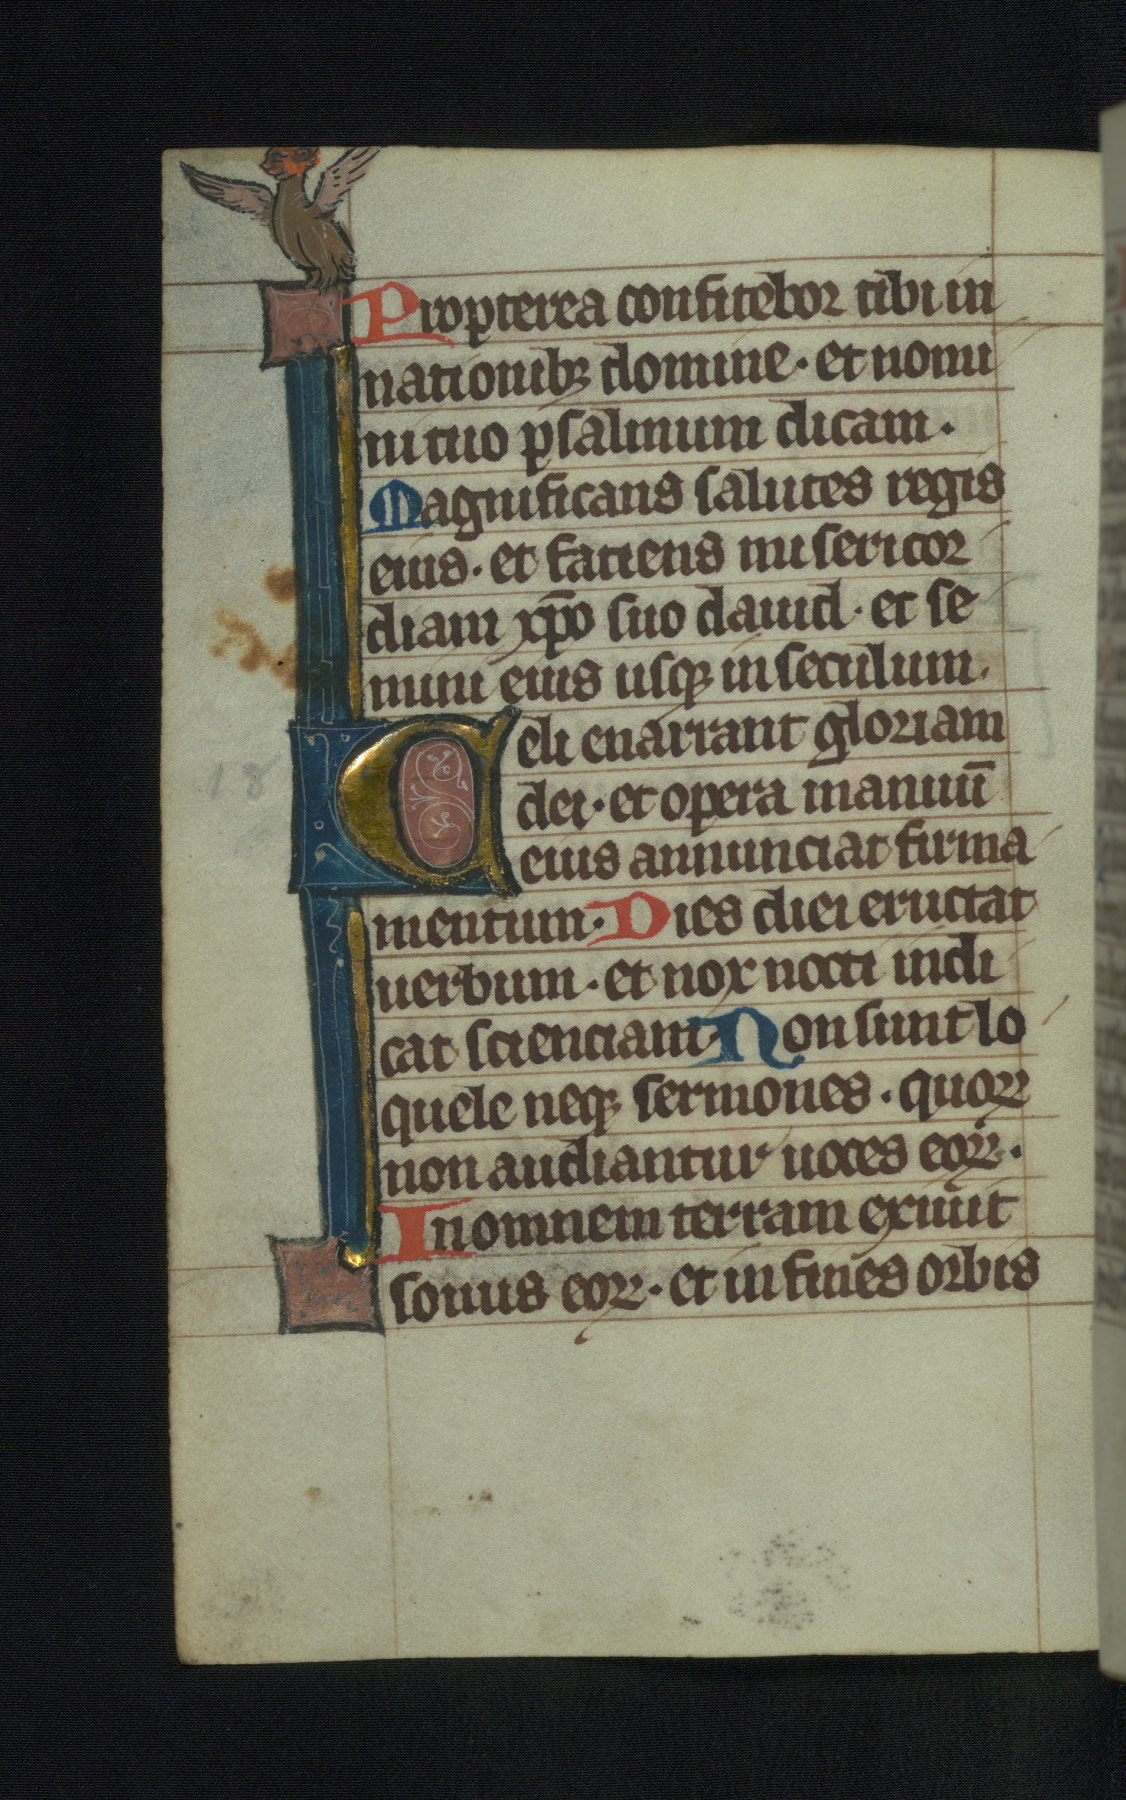 Propterea confitebor tibi in
nationibꝫ domine · et nomi
ni tuo psalmum dicam ·
Magnificans salutes regis
eius · et faciens misericor
diam xp̄o suo dauid · et se
mini eius usqꝫ in seculum ·
Celi enarrant gloriam
dei · et opera manuū
eius annunciat firma
mentum · Dies diei eructat
uerbum · et nox nocti indi
cat scienciam · Non sunt lo
quele neqꝫ sermones · quoꝝ
non audiantur uoces eoꝝ ·
In omnem terram exiuit
sonus eoꝝ · et in fines orbis
18